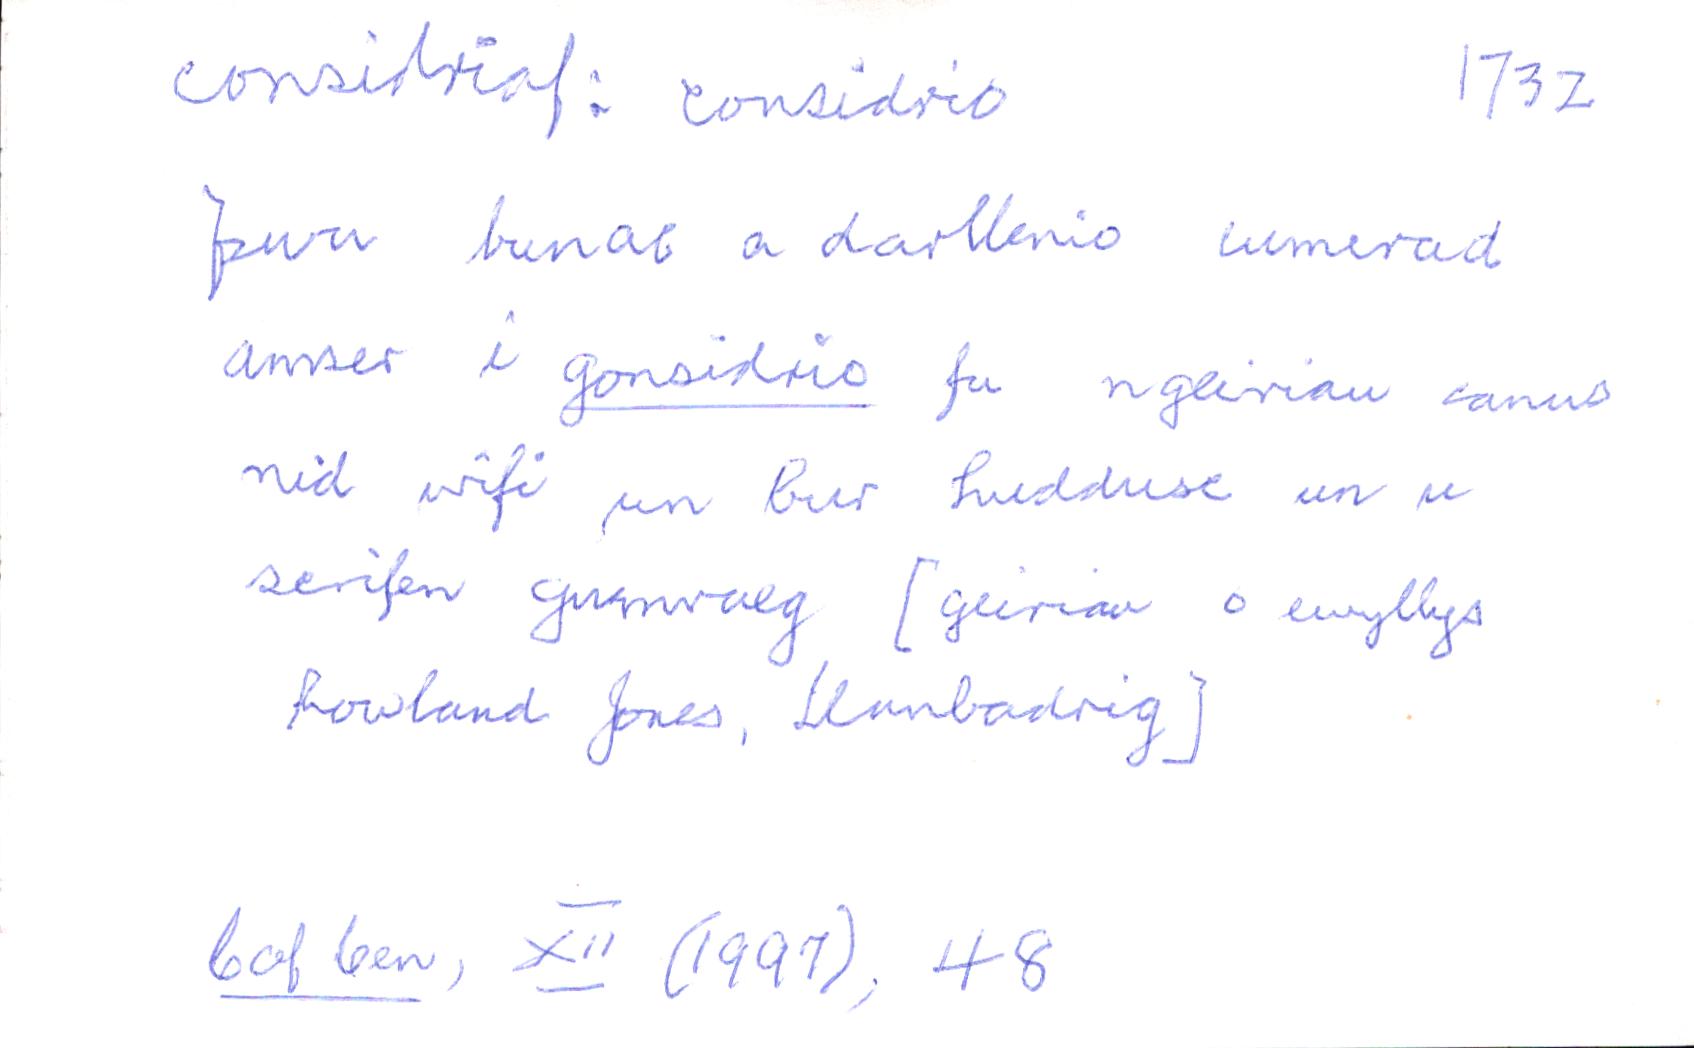 considriaf: considrio 1732
pwu bunac a darllenio cumerad
amser i gonsidrio fu ngeiriau canus
nid wifi un bur huddusc un u
scrifen gumraeg [geiriau o ewyllys
Rowland Jones, Llanbadrig]
Cof Cen, XII (1997), 48